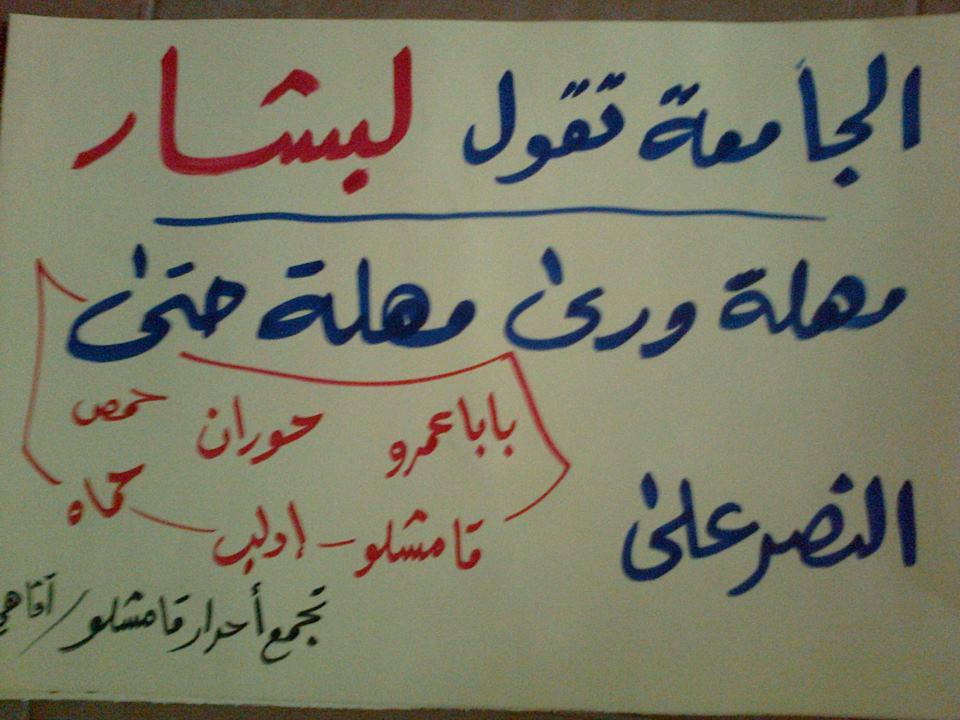 الجامعة تقول لبشار
مهلة ورى مهلة حتى
النصر على
باباعمرو حوران حمص
قامشلو - إدلب حماه
تجمع أحرار قامشلو / آفاهي